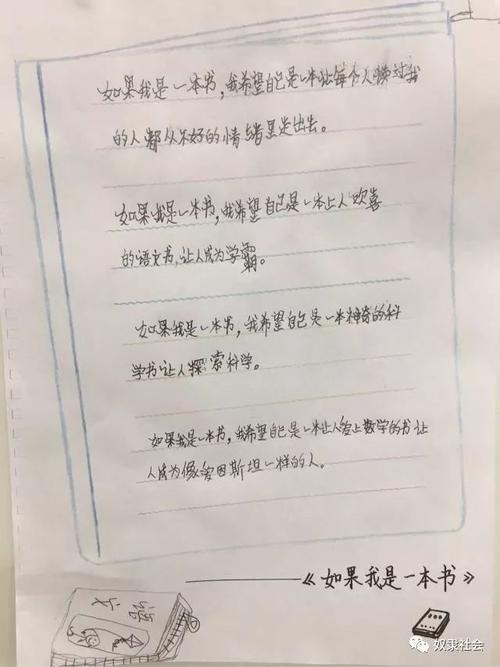 如果我是一本书，我希望自己是一本让每个人读过我
的人都从不好的情绪里走出去。
如果我是一本书，我希望自己是一本让人欢喜
的语文书，让人成为学霸。
如果我是一本书，我希望自己是一本神奇的科
学书让人探索科学。
如果我是一本书，我希望自己是一本让人爱上数学的书让
人成为像爱因斯坦一样的人。
——《如果我是一本书》
语文
奴隶社会